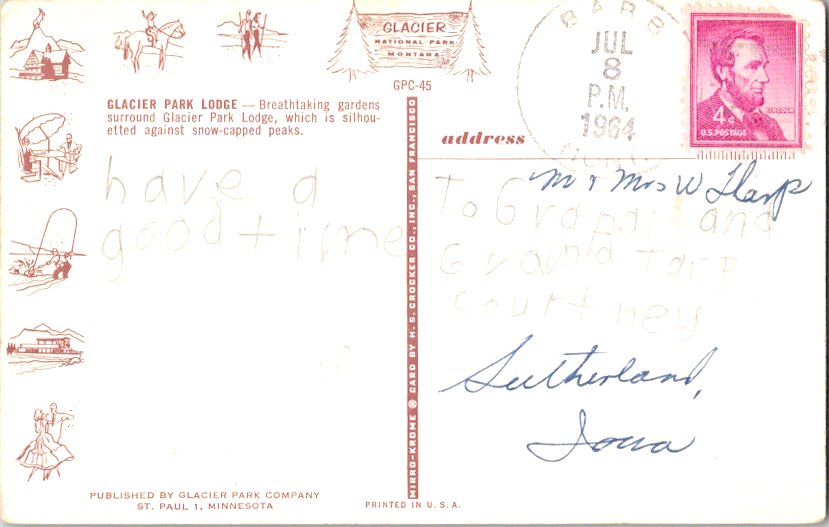 GLACIER
NATIONAL PARK
MONTANA
GPC-45
GLACIER PARK LODGE — Breathtaking gardens
surround Glacier Park Lodge, which is silhou-
etted against snow-capped peaks.
have a
good time
PUBLISHED BY GLACIER PARK COMPANY
ST. PAUL 1, MINNESOTA
MIRRO-KROME ® CARD BY H. S. CROCKER CO., INC., SAN FRANCISCO
PRINTED IN U. S. A.
BABB
JUL
8
P.M.
1964
MONT.
LINCOLN
4¢
U.S. POSTAGE
address
Mr & Mrs W Tharp
To Grapait and
Grampa tarp
Courtney
Sutherland,
Iowa